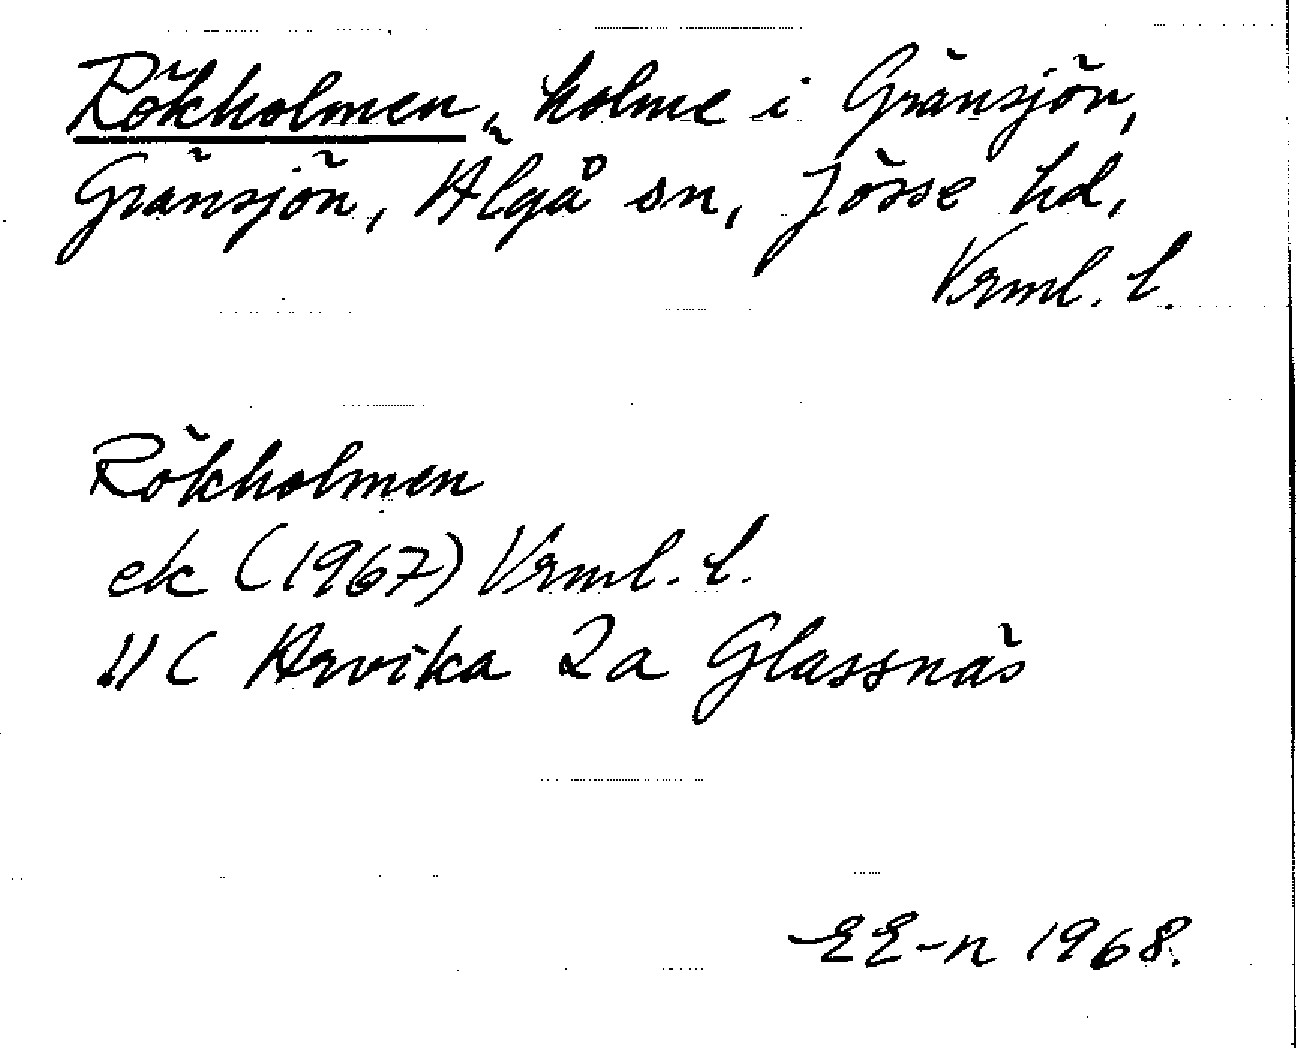 Rökholmen, holme i Gränsjön,
Gränsjön, Älgå sn, Jösse hd,
Vrml. l.
Rökholmen
ek (1967) Vrml. l.
11C Arvika 2a Glassnäs
EE-n 1968.